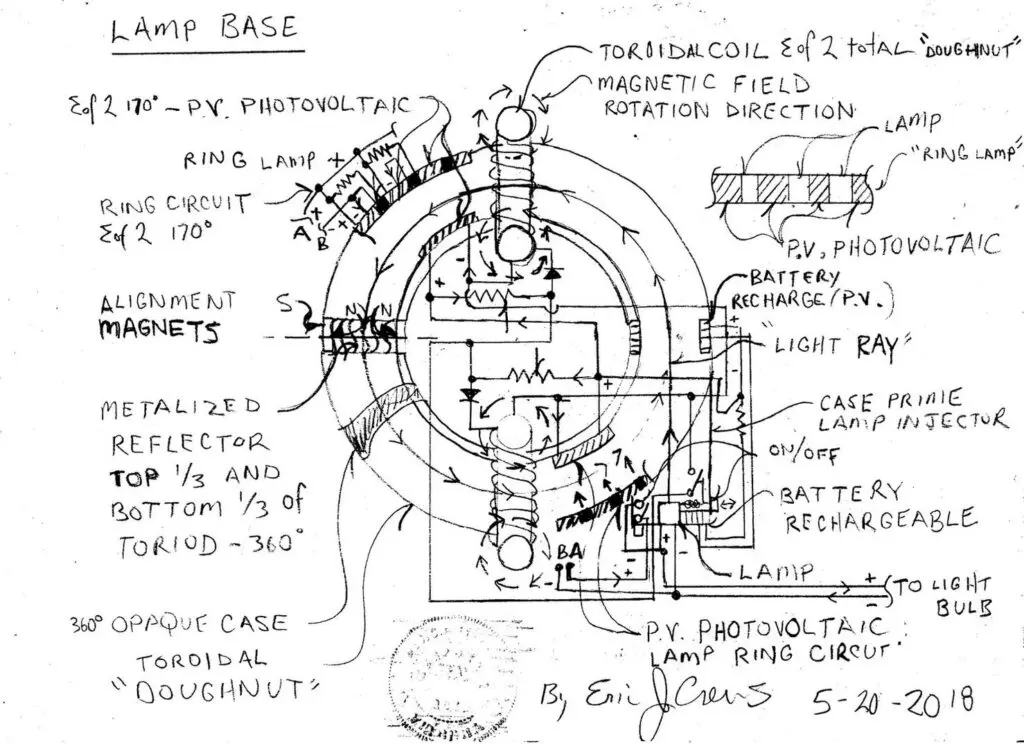 LAMP BASE
TOROIDAL COIL Σ of 2 total "DOUGHNUT"
MAGNETIC FIELD
ROTATION DIRECTION
Σ of 2 170° - P.V. PHOTOVOLTAIC
RING LAMP +
RING CIRCUIT
Σ of 2 170°
A
B
LAMP
"RING LAMP"
P.V. PHOTOVOLTAIC
ALIGNMENT
MAGNETS
S
N
N
BATTERY
RECHARGE/P.V.)
"LIGHT RAY"
METALIZED
REFLECTOR
TOP 1/3 AND
BOTTOM 1/3 of
TORIOD - 360°
CASE PRIME
LAMP INJECTOR
ON/OFF
BATTERY
RECHARGEABLE
BA
LAMP
TO LIGHT
BULB
360° OPAQUE CASE
TOROIDAL
"DOUGHNUT"
P.V. PHOTOVOLTAIC
LAMP RING CIRCUT
By, Eric J Crews
5-20-2018